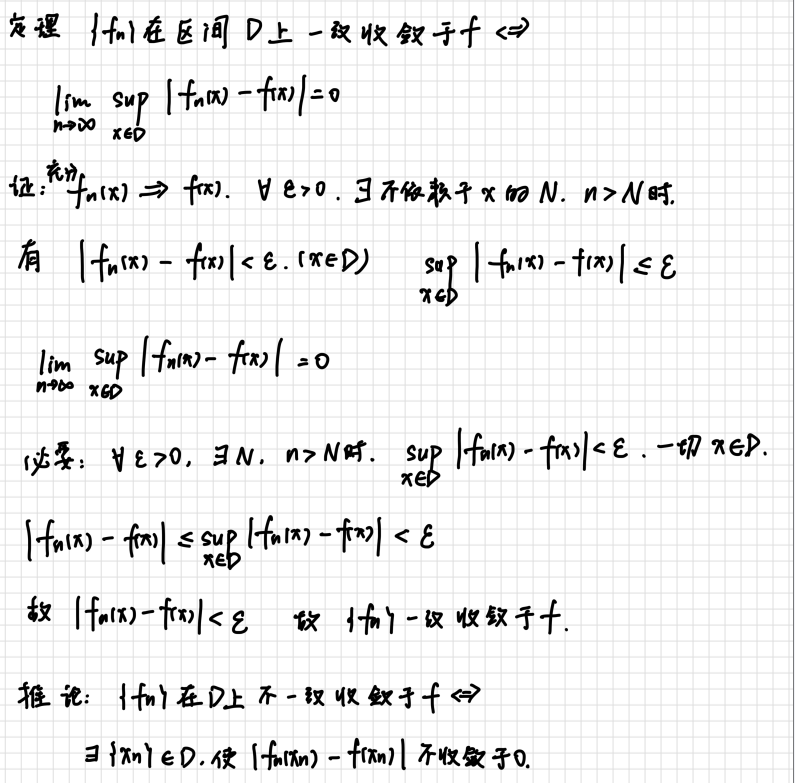 定理 {fn}在区间D上一致收敛于f ⇔
lim n→∞ sup x∈D |fn(x) - f(x)| = 0
证:充分 fn(x) ⇒ f(x). ∀ε>0. ∃不依赖于x的N. n>N时.
有 |fn(x) - f(x)| < ε. (x∈D) sup x∈D |fn(x) - f(x)| ≤ ε
lim n→∞ sup x∈D |fn(x) - f(x)| = 0
必要: ∀ε>0, ∃N. n>N时. sup x∈D |fn(x) - f(x)| < ε. 一切x∈D.
|fn(x) - f(x)| ≤ sup x∈D |fn(x) - f(x)| < ε
故 |fn(x) - f(x)| < ε 故 {fn}一致收敛于f.
推论: {fn}在D上不一致收敛于f ⇔
∃{xn}∈D. 使 |fn(xn) - f(xn)| 不收敛于0.